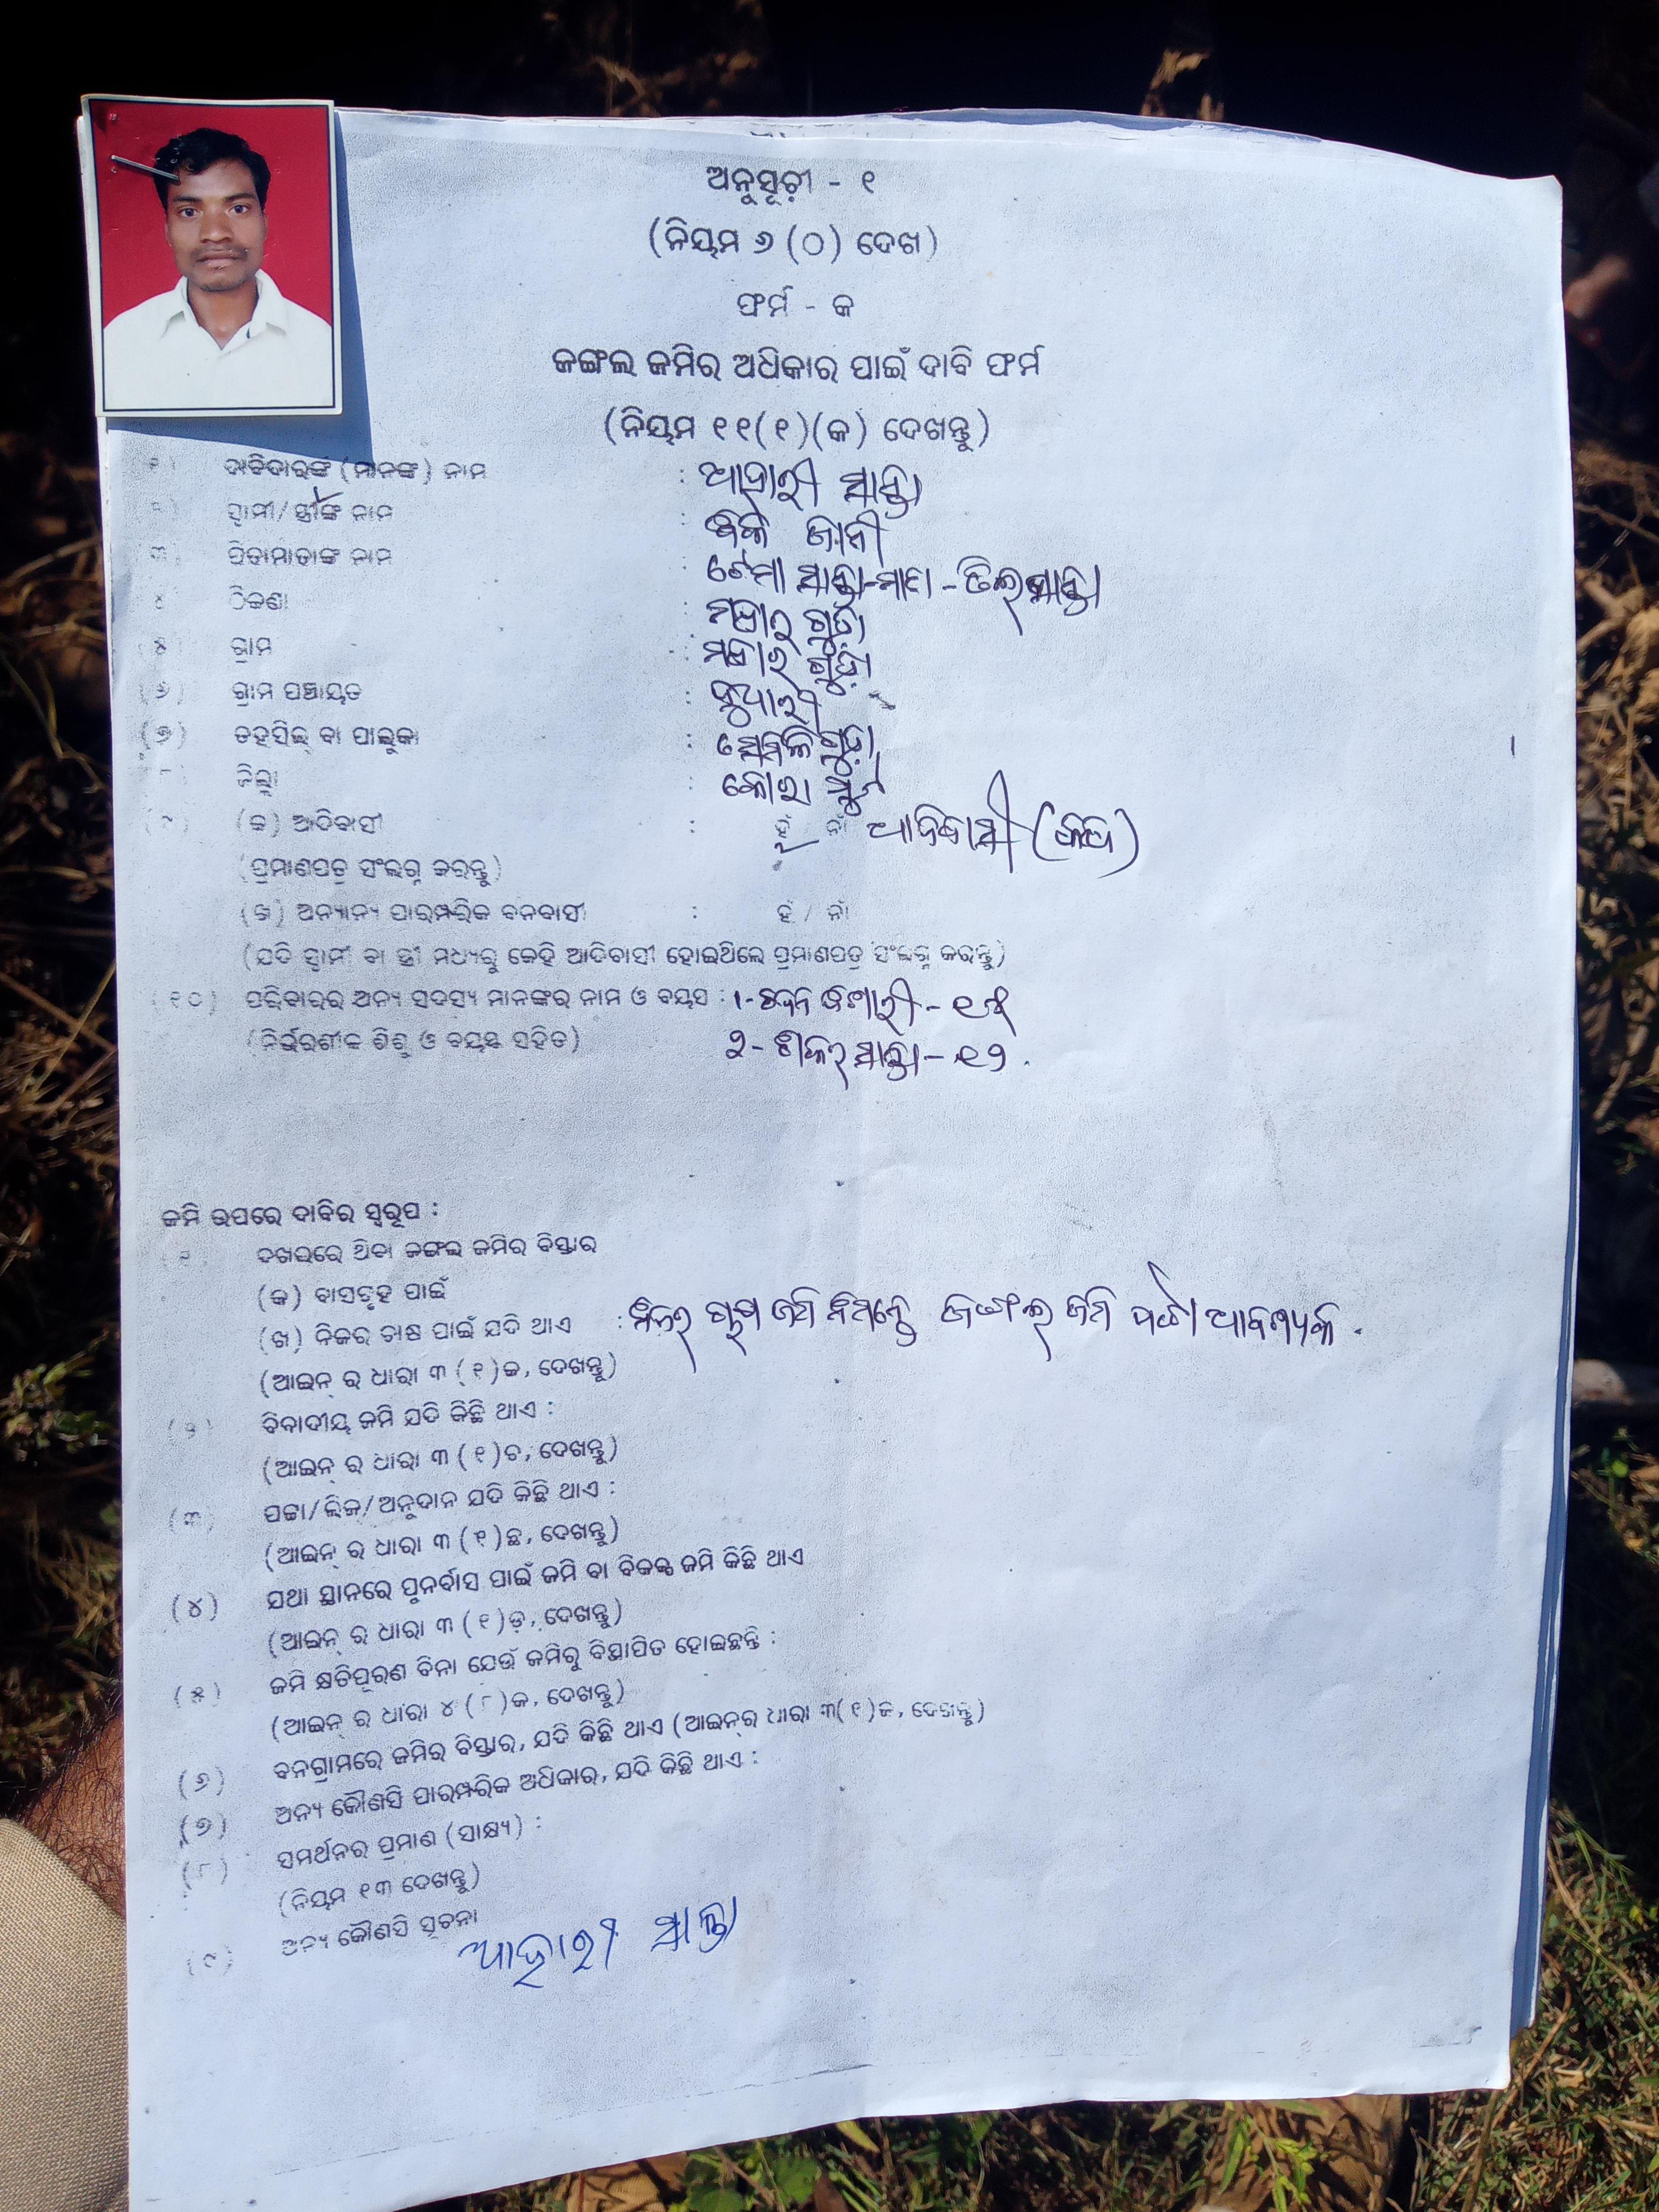 ଅନୁସୂଚୀ - ୧
(ନିୟମ ୬ (୦) ଦେଖ)
ଫର୍ମ - କ
ଜଙ୍ଗଲ ଜମିର ଅଧିକାର ପାଇଁ ଦାବି ଫର୍ମ
(ନିୟମ ୧୧(୧)(କ) ଦେଖନ୍ତୁ)
୧) ଦାବିଦାରଙ୍କ (ମାନଙ୍କ) ନାମ : ଆହାରୀ ସାନ୍ତା
୨) ସ୍ୱାମୀ/ସ୍ତ୍ରୀଙ୍କ ନାମ : ଜାନୀ
୩) ପିତାମାତାଙ୍କ ନାମ : ସାନ୍ତା-ମାତା-
୪ ଠିକଣା : ଗୁଡ଼ା
୫ ଗ୍ରାମ : ଗୁଡ଼ା
(୬) ଗ୍ରାମ ପଞ୍ଚାୟତ :
(୭) ତହସିଲ୍ ବା ତାଲୁକା : ସେମିଳିଗୁଡ଼ା
୮ ଜିଲ୍ଲା : କୋରାପୁଟ
(୯) (କ) ଆଦିବାସୀ : ହଁ / ନାଁ ଆଦିବାସୀ
(ପ୍ରମାଣପତ୍ର ସଂଲଗ୍ନ କରନ୍ତୁ)
(ଖ) ଅନ୍ୟାନ୍ୟ ପାରମ୍ପରିକ ବନବାସୀ : ହଁ / ନାଁ
(ଯଦି ସ୍ୱାମୀ ବା ସ୍ତ୍ରୀ ମଧ୍ୟରୁ କେହି ଆଦିବାସୀ ହୋଇଥିଲେ ପ୍ରମାଣପତ୍ର ସଂଲଗ୍ନ କରନ୍ତୁ)
(୧୦) ପରିବାରର ଅନ୍ୟ ସଦସ୍ୟ ମାନଙ୍କର ନାମ ଓ ବୟସ : ୧-
(ନିର୍ଭରଶୀଳ ଶିଶୁ ଓ ବୟସ୍କ ସହିତ) ୨- ସାନ୍ତା - ୧୨
ଜମି ଉପରେ ଦାବିର ସ୍ୱରୂପ :
ଦଖଲରେ ଥିବା ଜଙ୍ଗଲ ଜମିର ବିସ୍ତାର
(କ) ବାସଗୃହ ପାଇଁ
(ଖ) ନିଜର ଚାଷ ପାଇଁ ଯଦି ଥାଏ : ନିଜର ଚାଷ ଜମି ନିମନ୍ତେ ଜଙ୍ଗଲ ଜମି ପଟ୍ଟା ଆବଶ୍ୟକ .
(ଆଇନ୍ ର ଧାରା ୩ (୧)କ, ଦେଖନ୍ତୁ)
(୨) ବିବାଦୀୟ ଜମି ଯଦି କିଛି ଥାଏ :
(ଆଇନ୍ ର ଧାରା ୩ (୧)ଚ, ଦେଖନ୍ତୁ)
(୩) ପଟ୍ଟା/ଲିଜ୍/ଅନୁଦାନ ଯଦି କିଛି ଥାଏ :
(ଆଇନ୍ ର ଧାରା ୩ (୧)ଛ, ଦେଖନ୍ତୁ)
(୪) ଯଥା ସ୍ଥାନରେ ପୁନର୍ବାସ ପାଇଁ ଜମି ବା ବିକଳ୍ପ ଜମି କିଛି ଥାଏ
(ଆଇନ୍ ର ଧାରା ୩ (୧)ଡ଼, ଦେଖନ୍ତୁ)
(୫) ଜମି କ୍ଷତିପୂରଣ ବିନା ଯେଉଁ ଜମିରୁ ବିସ୍ଥାପିତ ହୋଇଛନ୍ତି :
(ଆଇନ୍ ର ଧାରା ୪ (୮)କ, ଦେଖନ୍ତୁ)
(୬) ବନଗ୍ରାମରେ ଜମିର ବିସ୍ତାର, ଯଦି କିଛି ଥାଏ (ଆଇନ୍‌ର ଧାରା ୩(୧)ଜ, ଦେଖନ୍ତୁ)
(୭) ଅନ୍ୟ କୌଣସି ପାରମ୍ପରିକ ଅଧିକାର, ଯଦି କିଛି ଥାଏ :
(୮) ସମର୍ଥନର ପ୍ରମାଣ (ସାକ୍ଷ୍ୟ) :
(ନିୟମ ୧୩ ଦେଖନ୍ତୁ)
(୯) ଅନ୍ୟ କୌଣସି ସୂଚନା
ଆହାରୀ ସାନ୍ତା